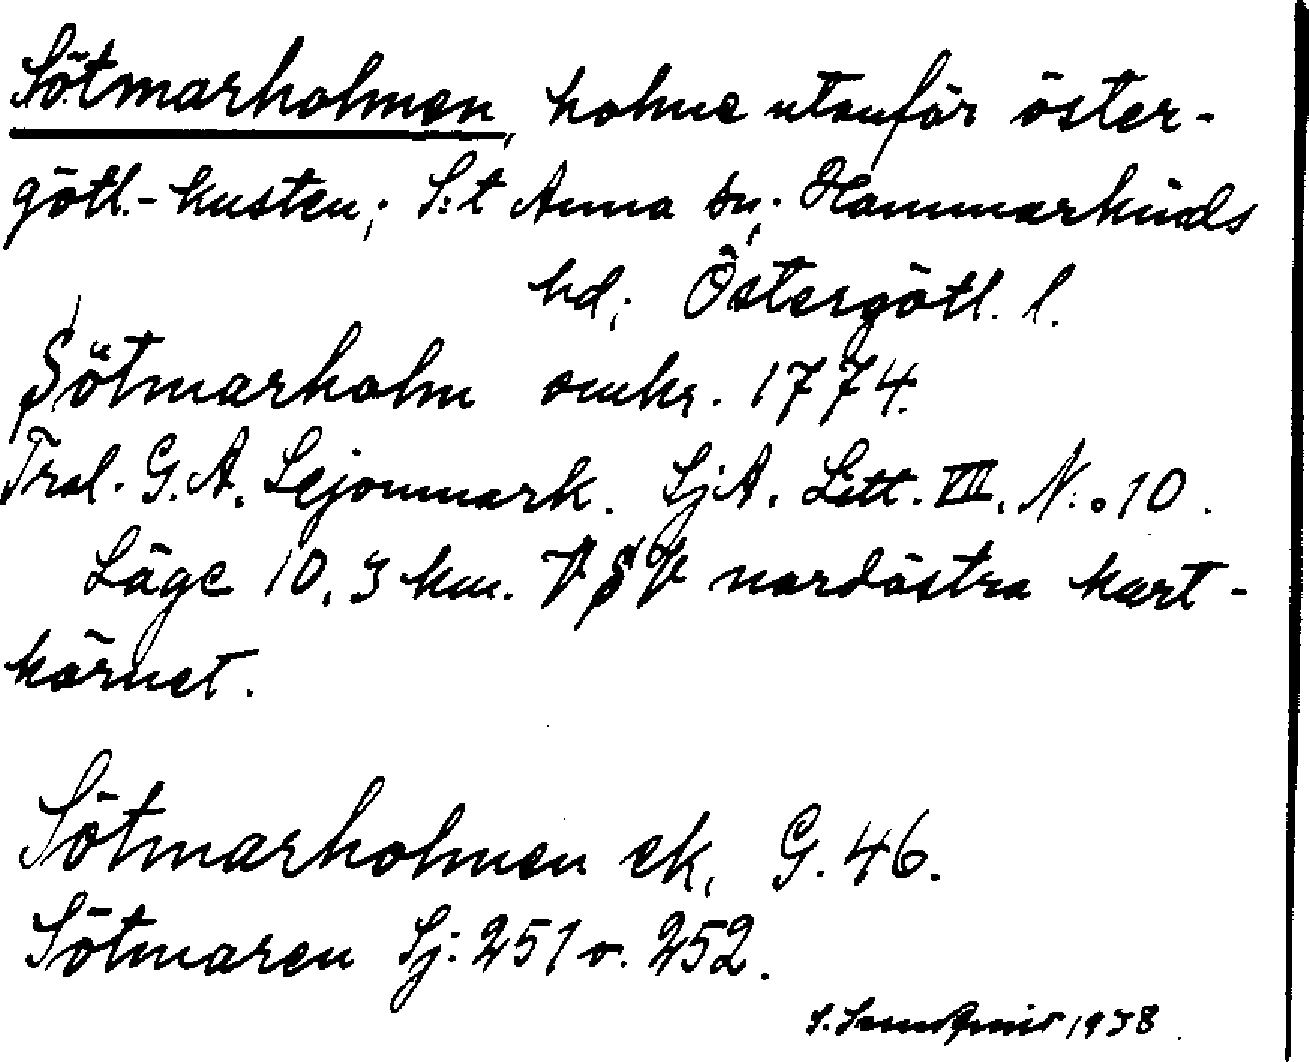 Sötmarholmen, holme utanför öster-
götl.-kusten; S:t Anna sn; Hammarkinds
hd; Östergötl. l.
Sötmarholm omkr. 1774.
Trol. G.A. Lejonmark. Sj.A. Litt. VII. N:o 10.
Läge 10,3 km. VSV nordöstra kart-
hörnet.
Sötmarholmen ek, G. 46.
Sötmaren Sj: 251 o. 252.
1938